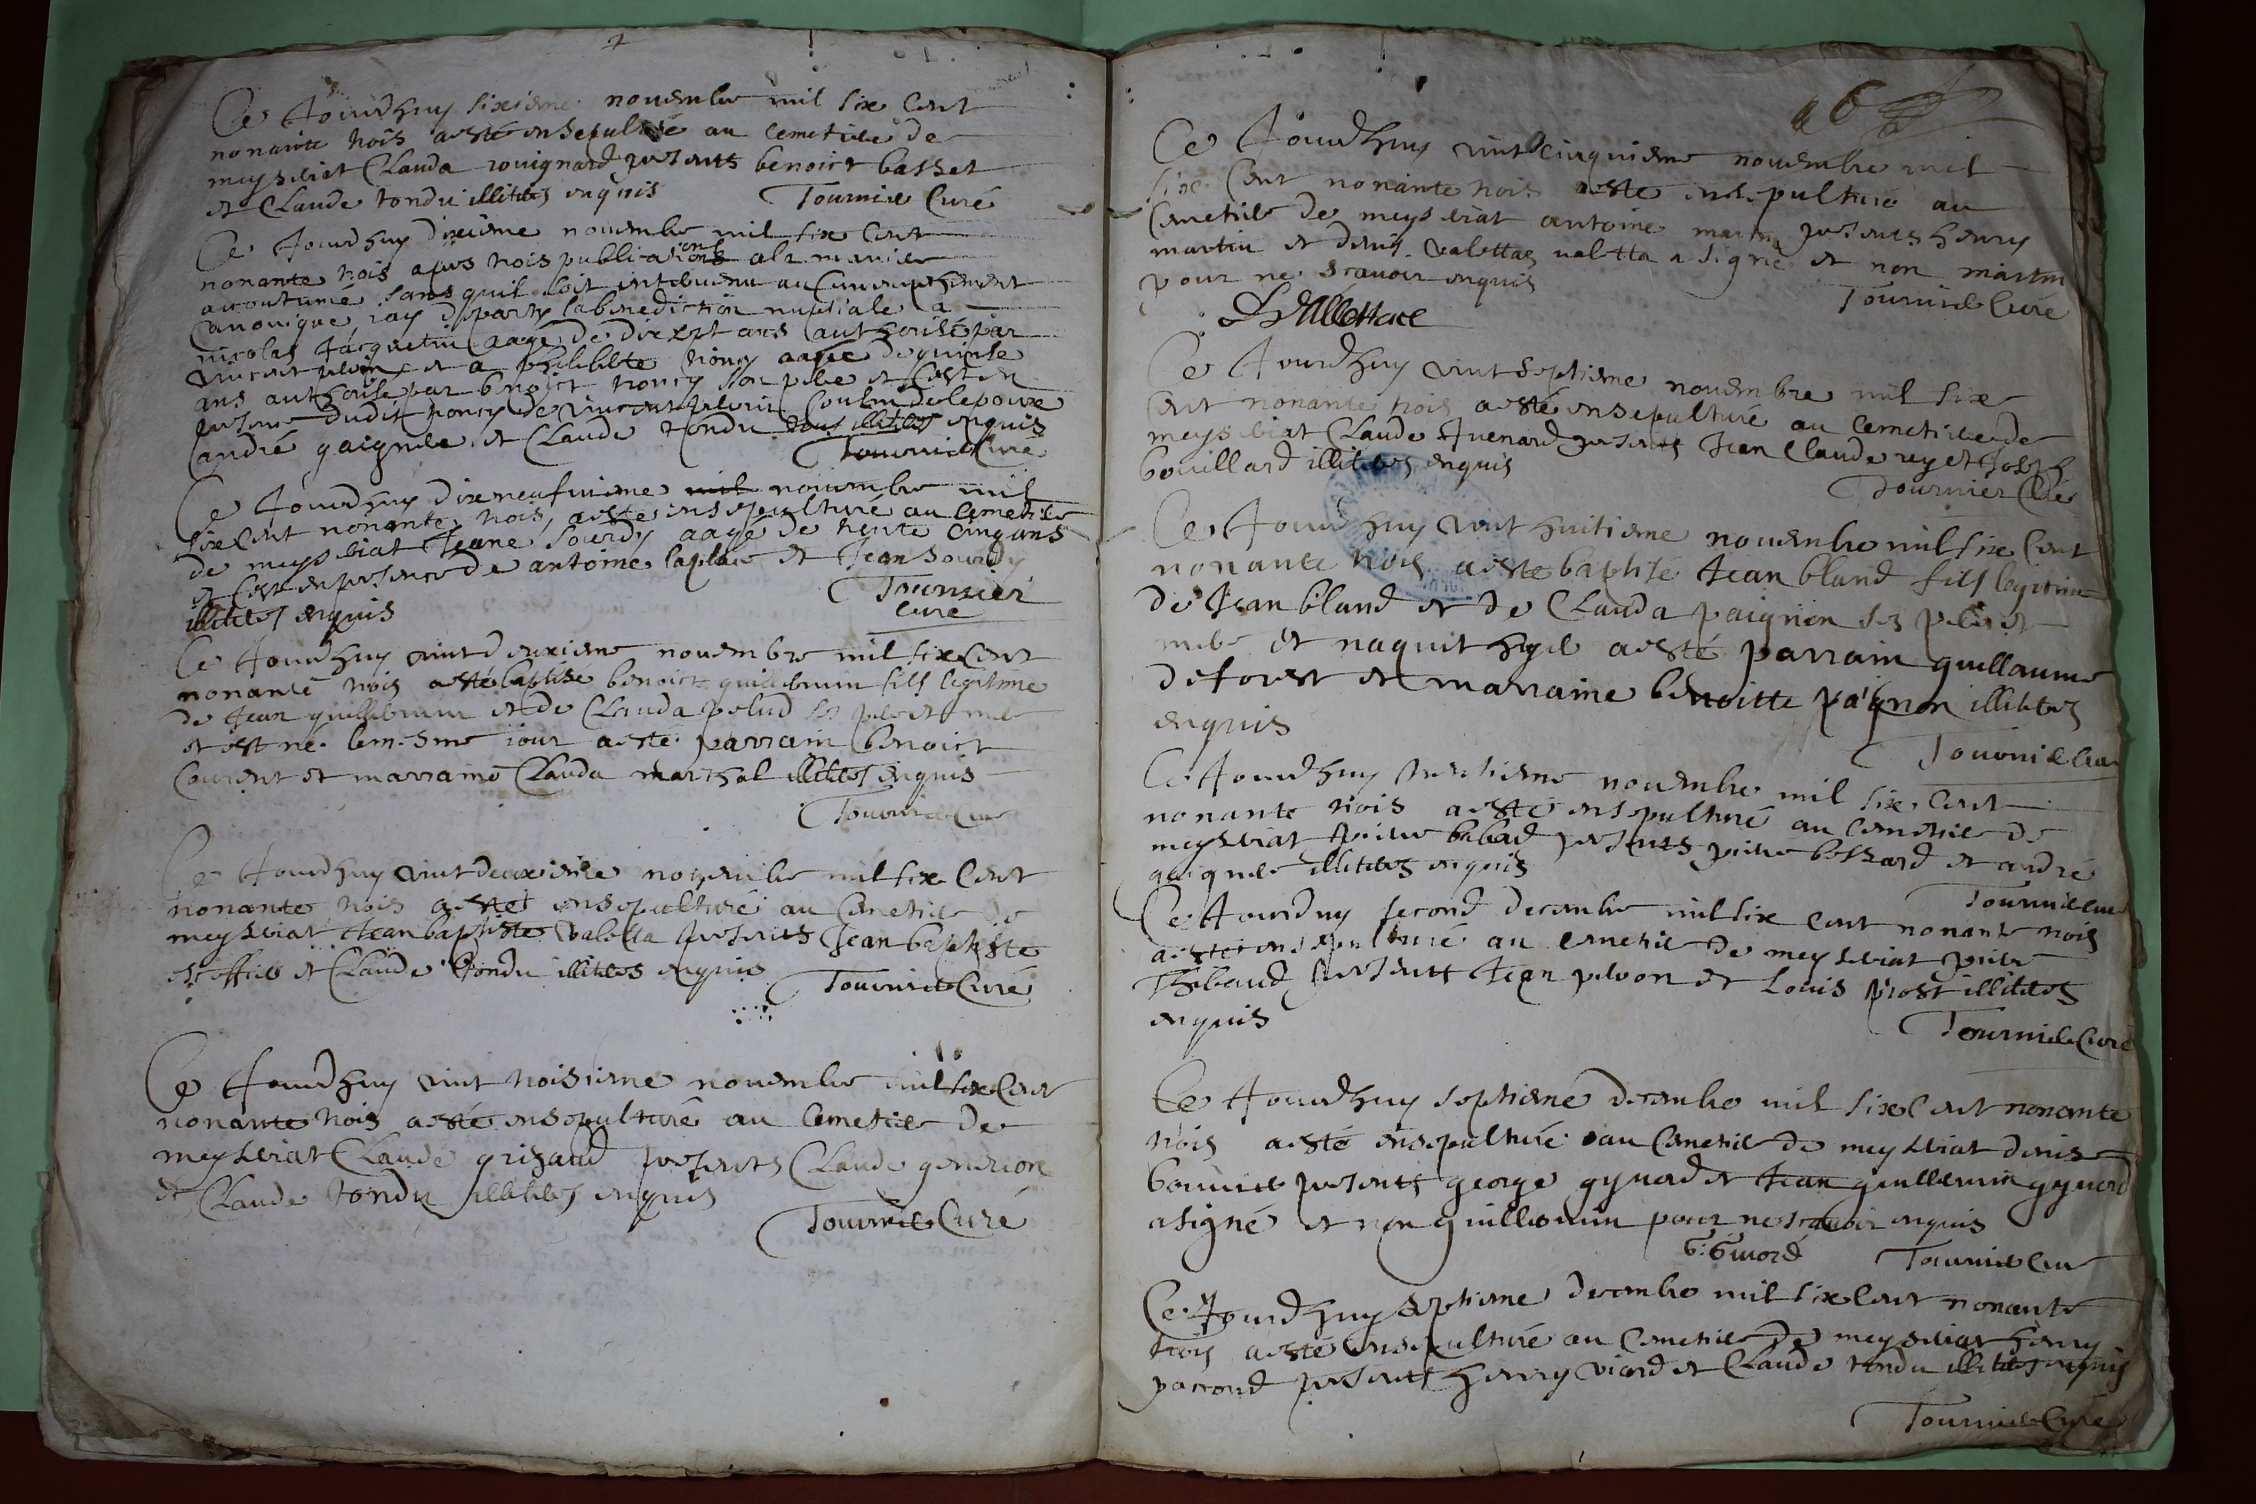 Ce Jourdhuy sixieme novembre mil six cent
nonante trois a esté ensepulturé au cemetiere de
meysseriat Clauda rovignard presents benoict basset
et Claude tondu illiteres enquis Tournier Curé
Ce Jourdhuy dixieme novembre mil six cent
nonante trois apres trois publications a la maniere
accoutumé sans quil soit intervenu aucun empechement
canonique jay departy la benediction nuptiale a
nicolas Jacquetin aagé de dix sept ans authorisé par
vincent et a philiberte poncy aagée de quinse
ans authorisé par benoict poncy son pere et c'est en
presence dudit poncy de vincent cousin de lepouse
andré gaignere et Claude tondu tous illiteres enquis
Tournier Curé
Ce Jourdhuy dixneufvieme mil novembre mil
six cent nonante trois a esté ensepulturé au cemetiere
de meysseriat Jeane Sourdy aagé de trente cinq ans
et c'est en presence de antoine laplace et Jean Sourdy
illiteres enquis Tournier
Curé
Ce Jourdhuy vint deuxieme novembre mil six cent
nonante trois a esté baptise benoict guillermin fils legitime
de Jean guillermin et de Clauda pelud ses pere et mere
et est né le mesme jour a esté parrain benoict
Courent et marraine Clauda marshal illiteres enquis
Tournier Curé
Ce Jourdhuy vint deuxieme novembre mil six cent
nonante trois a esté ensepulturé au cemetiere de
meysseriat Jean baptiste valetta presents Jean baptiste
escoffier et Claude tondu illiteres enquis
Tournier Curé
Ce Jourdhuy vint troisieme novembre mil six cent
nonante trois a esté ensepulturé au cemetiere de
meysseriat Claude grisaud presents Claude gendrion
et Claude tondu illiteres enquis
Tournier Curé
a 6
Ce Jourdhuy vint cinquieme novembre mil
six cent nonante trois a esté ensepulturé au
cemetiere de meysseriat antoine martin presents henry
martin et denis valettaz valetta a signé et non martin
pour ne scavoir enquis
Tournier Curé
D Vallettaz
Ce Jourdhuy vint septieme novembre mil six
cent nonante trois a esté ensepulturé au cemetiere de
meysseriat Claude Juenard presents Jean Claude rey et Joseph
bouillard illiteres enquis
Tournier Curé
Ce Jourdhuy vint huitieme novembre mil six cent
nonante trois a esté baptise Jean bland fils legitime
de Jean bland et de Clauda paignon ses pere et
mere et naquit hyer a esté parrain guillaume
deforest et marraine benoitte paignon illiteres
enquis
Tournier Curé
Ce Jourdhuy trentieme novembre mil six cent
nonante trois a esté ensepulturé au cemetiere de
meysseriat pierre babad presents pierre bossard et andré
gaignere illiteres enquis
Tournier Curé
Ce Jourduy second decembre mil six cent nonante trois
a esté ensepulturé au cemetiere de meysseriat pierre
Thibaud presents Jean pivon et Louis prost illiteres
enquis
Tournier Curé
Ce Jourdhuy septieme decembre mil six cent nonante
trois a esté ensepulturé au cemetiere de meysseriat denise
bouvier presents george gyvord et Jean guillermin gyvord
a signé et non guillermin pour ne scavoir enquis
G: Givord Tournier Curé
Ce Jourdhuy septieme decembre mil six cent nonante
trois a esté ensepulturé au cemetiere de meysseriat henry
paccoud presents henry viard et Claude tondu illiteres enquis
Tournier Curé